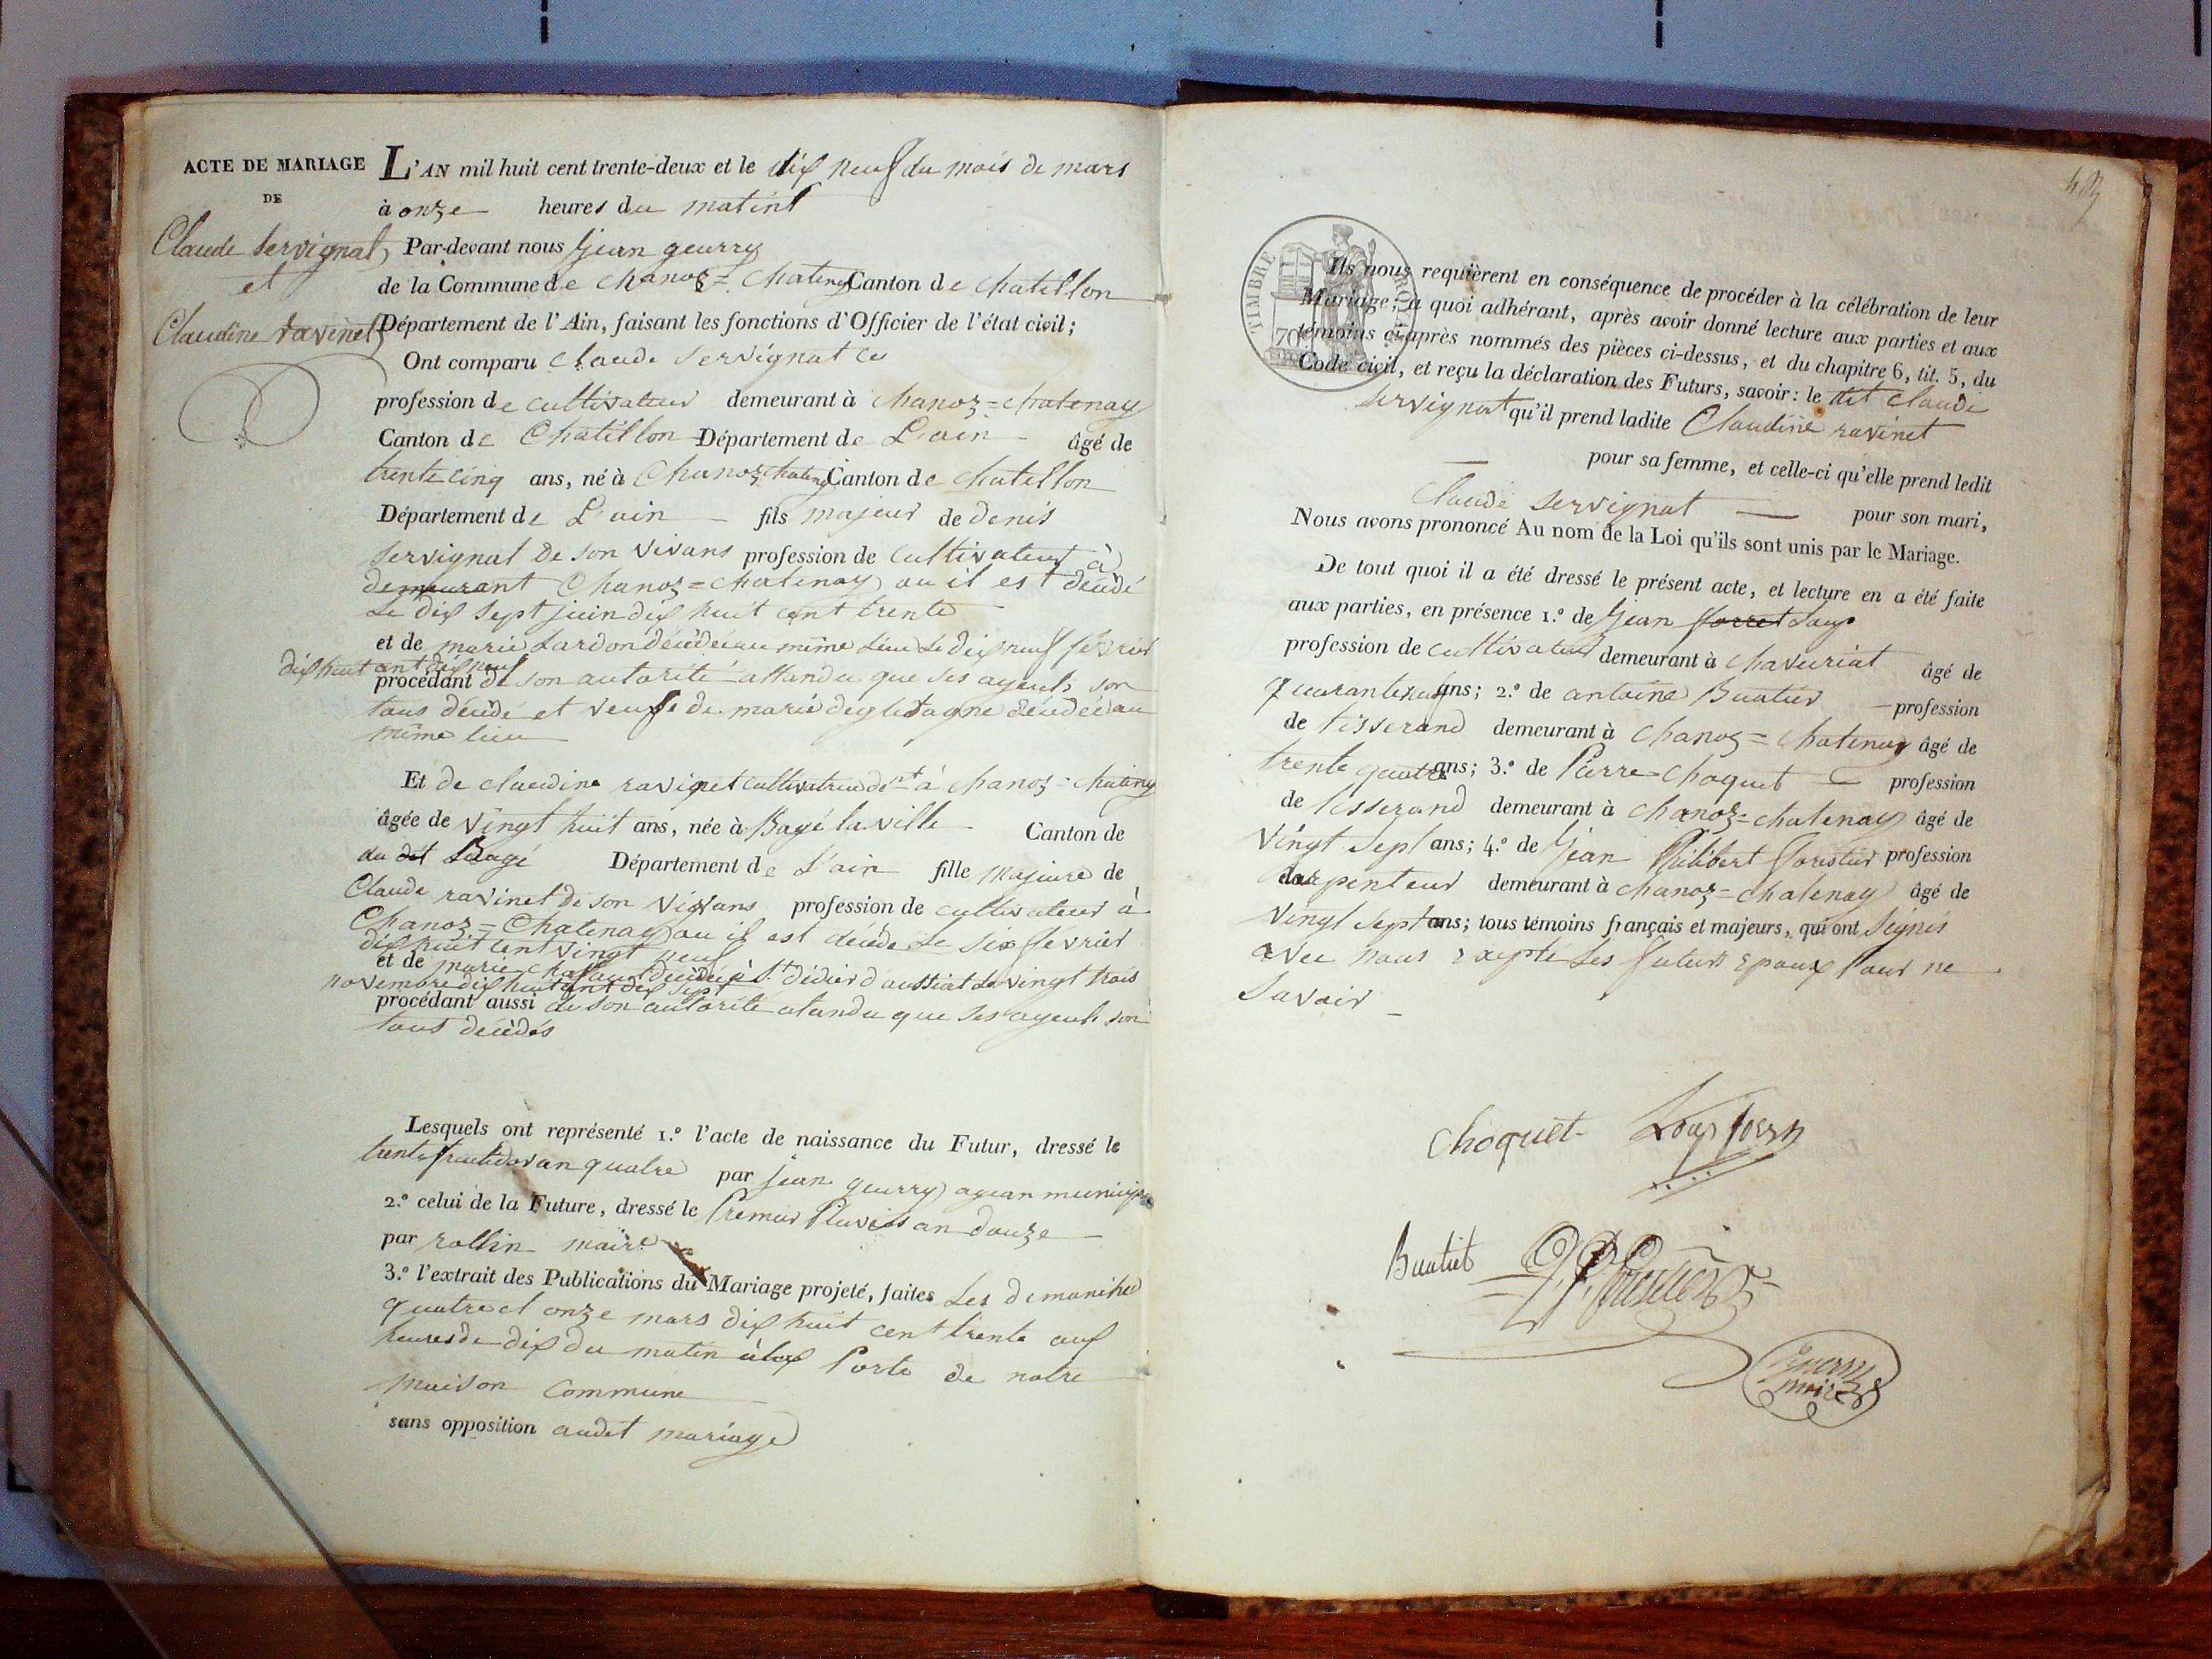 ACTE DE MARIAGE
DE
Claude Servignat
et
Claudine ravinet
L'AN mil huit cent trente-deux et le dix neuf du mois de mars
à onze heures du matint
Par-devant nous Jean geurry
de la Commune de Chanoz = Chateny Canton de Chatillon
Département de l'Ain, faisant les fonctions d'Officier de l'état civil;
Ont comparu Claude Servignat
profession de cultivateur demeurant à Chanoz = Chatenay
Canton de Chatillon Département de L'ain âgé de
trente cinq ans, né à Chanoz Canton de Chatillon
Département de L'ain fils majeur de denis
Servignat de son vivans profession de Cultivateur à
demeurant Chanoz = Chatenay ou il est décédé
Le dix sept juin dix huit cent trente
et de marie Lardon décédée au même Lieu Le dix neuf février
dix huit cent dix neuf
procédant de son autorité attandu que ses ayeuls son
tous décédé et veuf de marie decédée au
même lieu
Et de claudine ravinet cultivatrice dt à Chanoz = Chateny
âgée de vingt huit ans, née à Bagé la ville Canton de
du dit Bagé Département de L'ain fille majeure de
Claude ravinet de son vivans profession de cultivateur à
Chanoz = Chatenay ou il est décédé Le six février
dix huit cent vingt neuf
et de marie décédée à St didier d'aussiat Le vingt trois
novembre dix huit cent dix sept
procédant aussi de son autorité atandu que ses ayeuls son
tous décédés
Lesquels ont représenté 1.º l'acte de naissance du Futur, dressé le
trente fructidor an quatre par jean geurry agean municipal
2.º celui de la Future, dressé le Premier Pluvios an douze
par rollin maire
3.º l'extrait des Publications du Mariage projeté, faites Les dimanches
quatre et onze mars dix huit cent trente aux
heures de dix du matin à la Porte de notre
maison Commune
sans opposition audit mariage
TIMBRE ROYAL
70
Ils nous requièrent en conséquence de procéder à la célébration de leur
Mariage; à quoi adhérant, après avoir donné lecture aux parties et aux
témoins ci-après nommés des pièces ci-dessus, et du chapitre 6, tit. 5, du
Code civil, et reçu la déclaration des Futurs, savoir: le dit Claude
Servignat qu'il prend ladite Claudine ravinet
pour sa femme, et celle-ci qu'elle prend ledit
Claude Servignat pour son mari,
Nous avons prononcé Au nom de la Loi qu'ils sont unis par le Mariage.
De tout quoi il a été dressé le présent acte, et lecture en a été faite
aux parties, en présence 1.º de Jean Loup
profession de cultivateur demeurant à Chaveriat âgé de
quarante neuf ans; 2.º de antoine Buatier profession
de tisserand demeurant à Chanoz = Chatenay âgé de
trente quatre ans; 3.º de Pierre Choquet profession
de tisserand demeurant à Chanoz = chatenay âgé de
vingt sept ans; 4.º de Jean Philibert forestier profession
charpenteur demeurant à Chanoz = chatenay âgé de
vingt sept ans; tous témoins français et majeurs, qui ont Seignés
avec nous excepté Les futurs Epoux Pour ne
Savoir
Choquet
Buatiet
maire